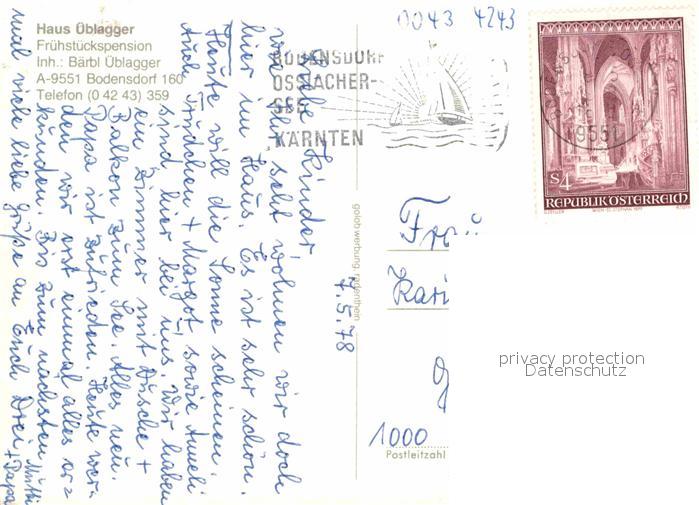 Haus Üblagger
Frühstückspension
Inh.: Bärbl Üblagger
A-9551 Bodensdorf 160
Telefon (0 42 43) 359
0043 4243
BODENSDORF
OSSIACHER-
SEE
KÄRNTEN
9551
S4
REPUBLIK ÖSTERREICH
7.5.78
Liebe Kinder,
wie Ihr seht wohnen wir doch
hier im Haus. Es ist sehr schön.
Heute will die Sonne scheinen.
Auch Trudchen + Margot sowie Anneli
sind hier bei uns. Wir haben
ein Zimmer mit Dusche +
Balkon zum See. Alles neu.
Papa ist zufrieden. Heute wer-
den wir erst einmal alles er=
kunden. Bis zum nächsten
mal viele liebe Grüße an Euch Drei
Mutti
+ Papa
golob werbung, radenthein
Frau
Kari
1000
Postleitzahl
privacy protection
Datenschutz